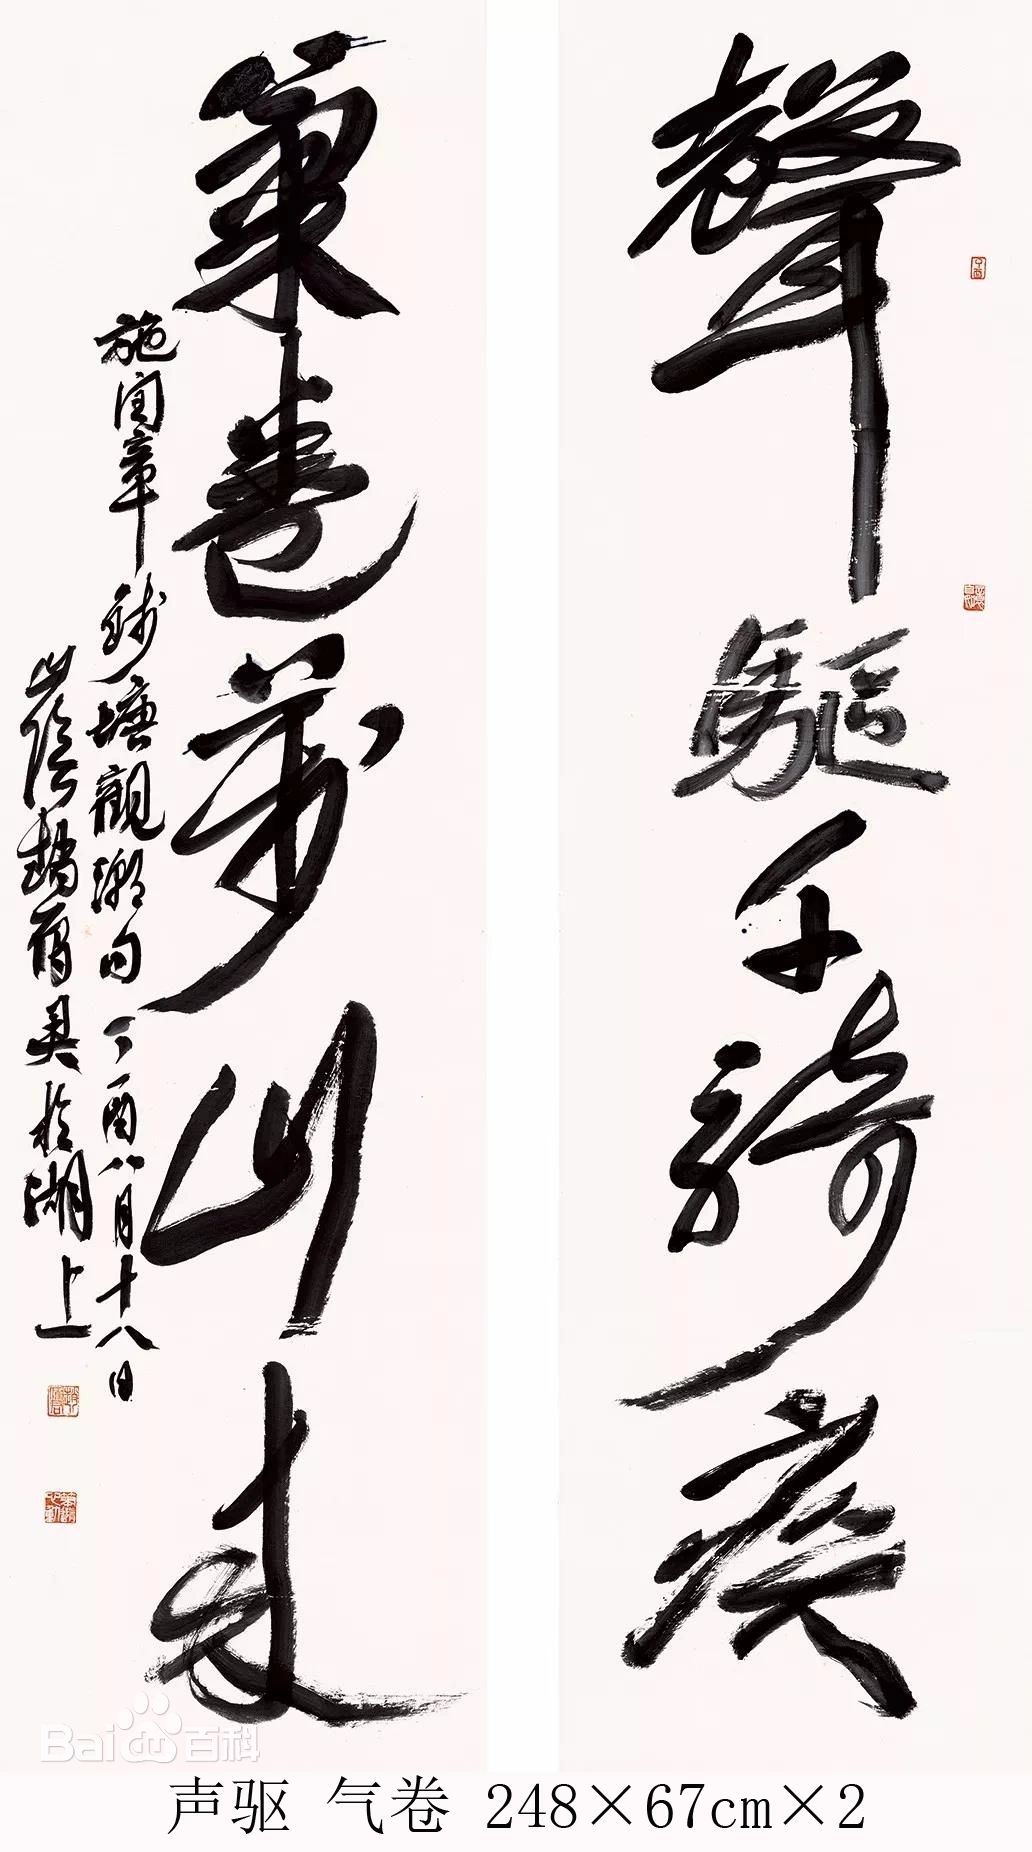 聲驅千騎疾
氣卷萬山來
施閏章錢塘觀潮句 丁酉八月十八日
山陰趙雁君於湖上
Baidu百科
声驱 气卷 248×67cm×2